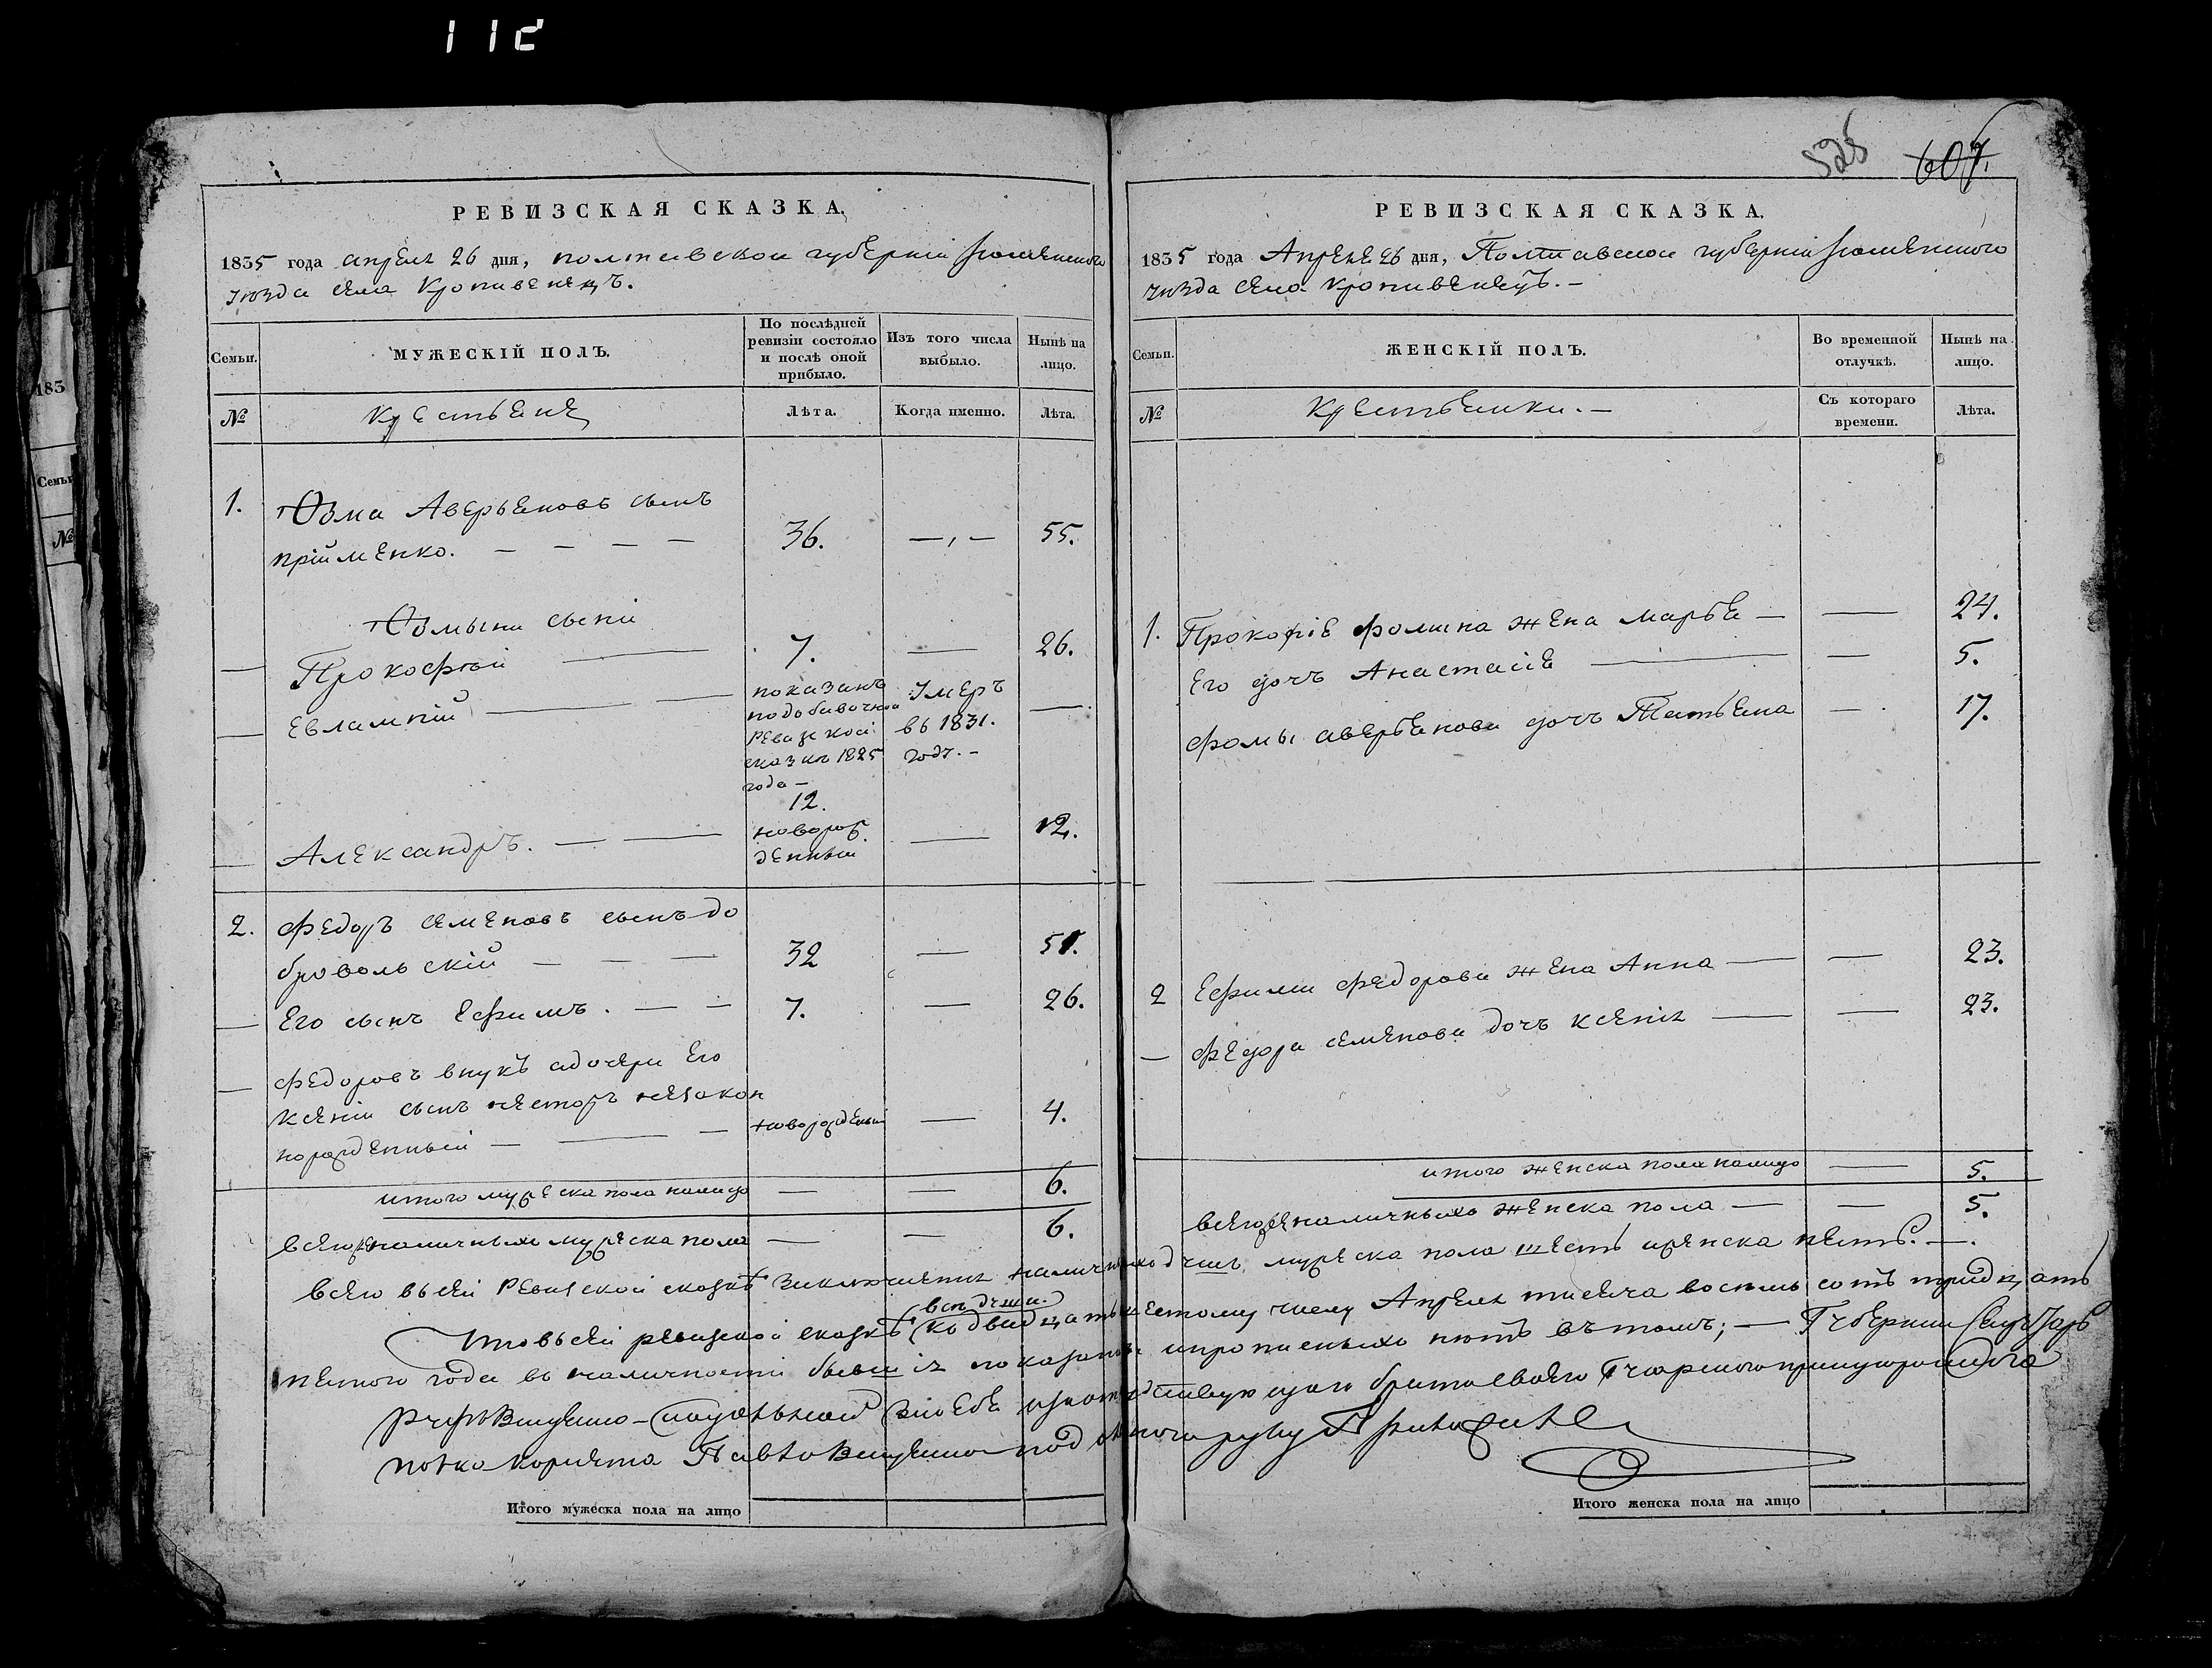 РЕВИЗСКАЯ СКАЗКА,
1835 года апреля 26 дня, полтавской губернии роменского
уезда села Кропивенецъ.
Семьи.
МУЖЕСКІЙ ПОЛЪ.
По послѣдней ревизіи состояло и послѣ оной прибыло.
Изъ того числа выбыло.
Нынѣ на лицо.
№
Крестьяне
Лѣта.
Когда именно.
Лѣта.
1. Фома Аверьяновъ сынъ
прійменко. — — — — 36. — 55.
Фомыни сыни
— Прокофѣй — 7. — 26.
— Евлампій — показанъ по добавочной ревизской сказкѣ 1825 года — 12. умеръ въ 1831. годѣ. — —
— Александръ. — — новорож денный — 12.
2. Федоръ семеновъ сынъ до
бровольскій — — — 32 — 51.
— Его сынъ Ефимъ. — — 7. — 26.
— Федоровъ внукъ адочери его
ксеніи сынъ несторъ незакон
норожденный — — — новорожденый — 4.
итого мужеска пола налицо — — 6.
всегоженаличныхъ мужеска пола — — 6.
528 607.
РЕВИЗСКАЯ СКАЗКА.
1835 года Апреля 26 дня, Полтавской губерніи роменского
уезда села кропивенецъ. —
Семьи.
ЖЕНСКІЙ ПОЛЪ.
Во временной отлучкѣ.
Нынѣ на лицо.
№
Крестьянки. —
Съ котораго времени.
Лѣта.
1. Прокофіе фомина жена марья — — 24.
Его дочъ Анастасія — — 5.
фомы аверьянова дочъ Татьяна — 17.
2 Ефима федорова жена Анна — — 23.
— Федора семенова дочъ ксенія — — 23.
итого женска пола налицо — 5.
всегоженаличныхъ женска пола — — 5.
всего въсей Ревизской сказкѣ заключается наличныхъ душъ мужеска пола шесть иженска пять. —.
Что въ сей ревизской сказкѣ (всѣ души.) ко двадцать шестому числу Апреля тисяча восемь сотъ тридцать
пятого года въ наличности бывшія показаны и прописныхъ нѣтъ въ томъ; — Губернский Секретарь
Итого мужеска пола на лицо
Итого женска пола на лицо